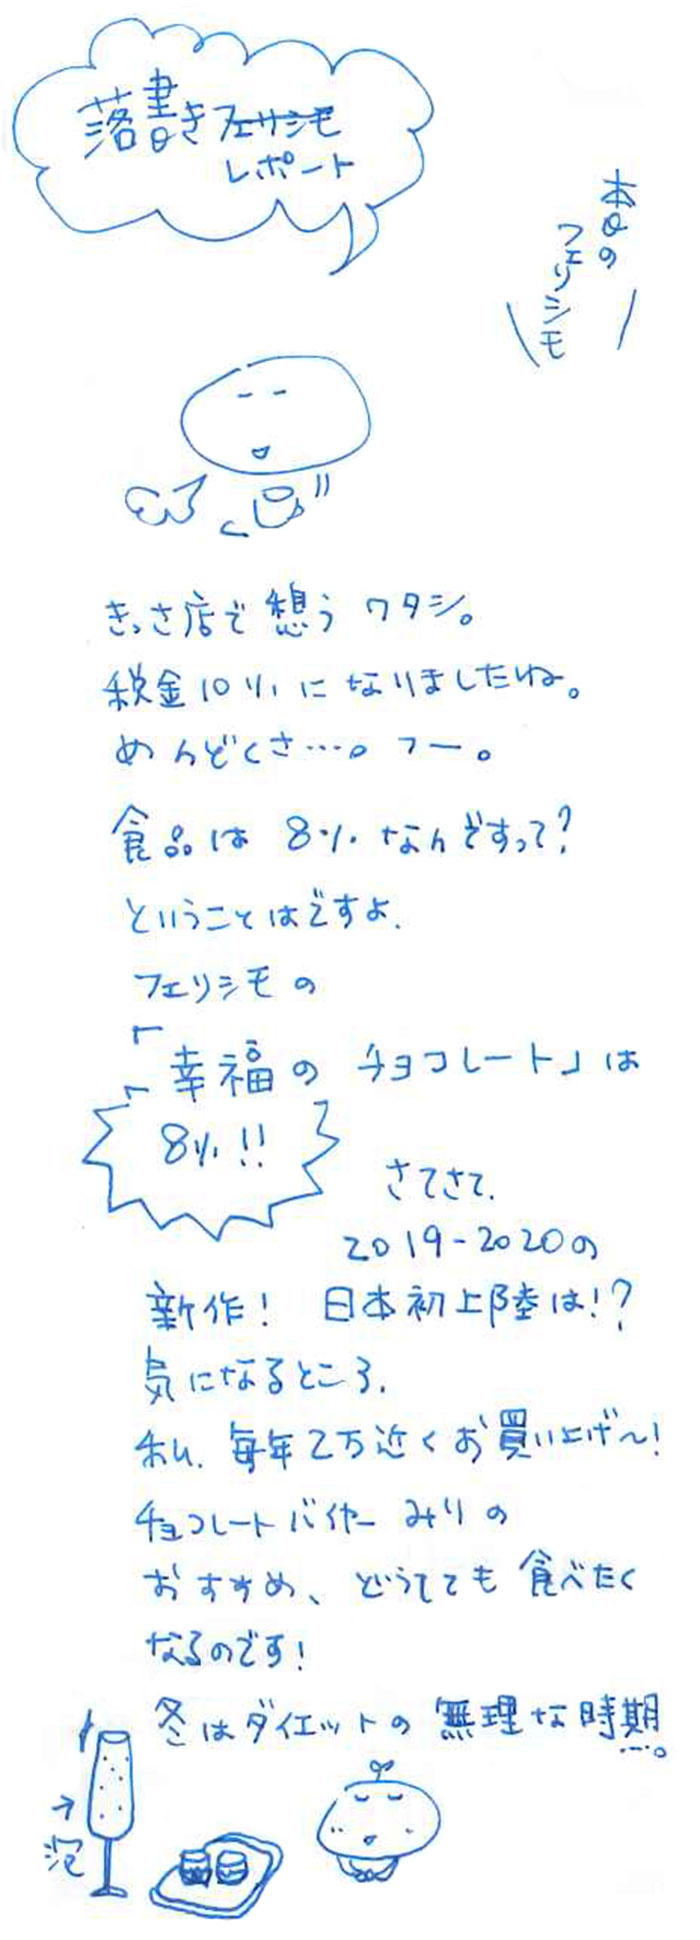 落書きフェリシモ
レポート
本日の
フェリシモ
きっさ店で想うワタシ。
税金10%になりましたね。
めんどくさ…。フー。
食品は8%なんですって?
ということはですよ、
フェリシモの
「幸福のチョコレート」は
8%!!
さてさて、
2019-2020の
新作! 日本初上陸は!?
気になるところ、
私、毎年2万近くお買い上げ〜!
チョコレートバイヤーみりの
おすすめ、どうしても食べたく
なるのです!
冬はダイエットの無理な時期…。
泡